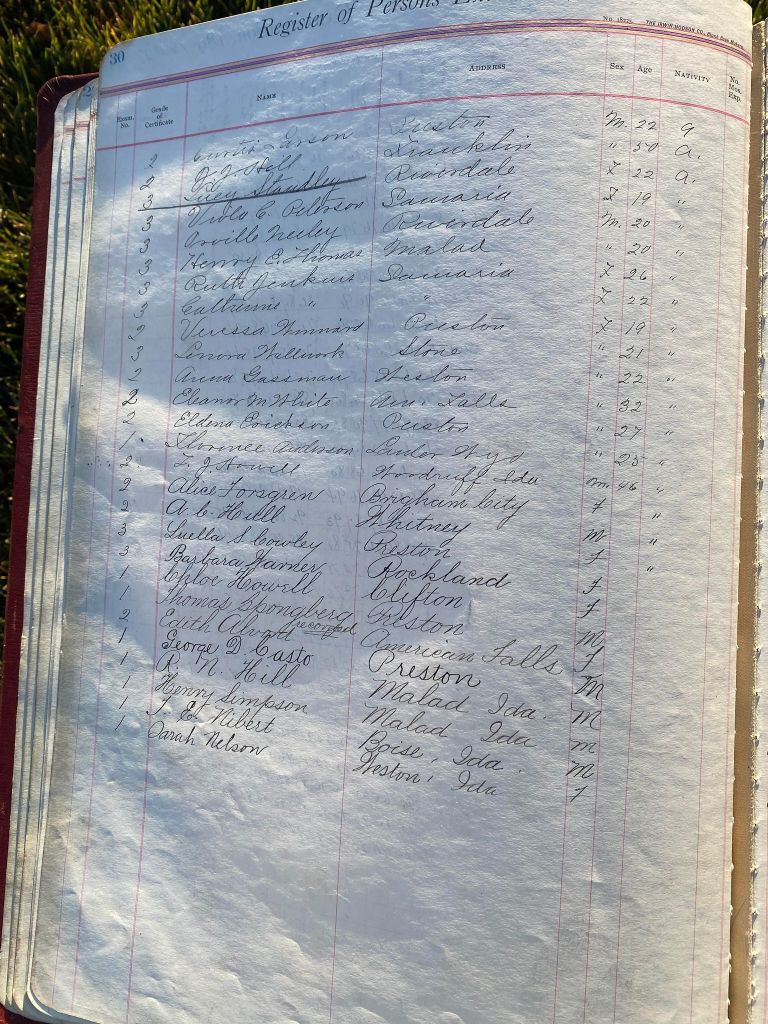 30 Register of Persons
No. 18775 THE IRWIN-HODSON CO.
Exam. No. Grade of Certificate NAME ADDRESS Sex Age NATIVITY No. Mos. Exp.
2 Curtis Larson Preston M. 22 a
2 J. J. Hill Franklin " 50 a.
3 Lucy Standley Riverdale F 22 a.
3 Viola C. Peterson Samaria F 19 "
3 Orville Neeley Riverdale M. 20 "
3 Henry E. Thomas Malad " 20 "
3 Ruth Jenkins Samaria F 26 "
3 Catherine " " F 22 "
2 Veressa Winnard Preston F 19 "
3 Lenora Wallwork Stone " 21 "
2 Anna Gassman Weston " 22 "
2 Eleanor M. White Am. Falls " 32 "
2 Eldena Erickson Preston " 27 "
1 Florence Anderson Lander Wyo " 25 "
2 T. J. Howell Woodruff Ida m. 46 "
2 Alice Forsgren Brigham City f "
2 A. C. Hull Whitney M "
3 Luella S. Cowley Preston f "
3 Barbara Warner Rockland f
1 Chloe Howell Clifton f
1 Thomas Spongberg Preston M
2 Edith Alvord recorded American Falls f
1 George D. Casto Preston M
1 R. N. Hill Malad Ida. M
1 Henry Simpson Malad Ida m
1 J. E. Nibert Boise, Ida. M
1 Sarah Nelson Weston, Ida f